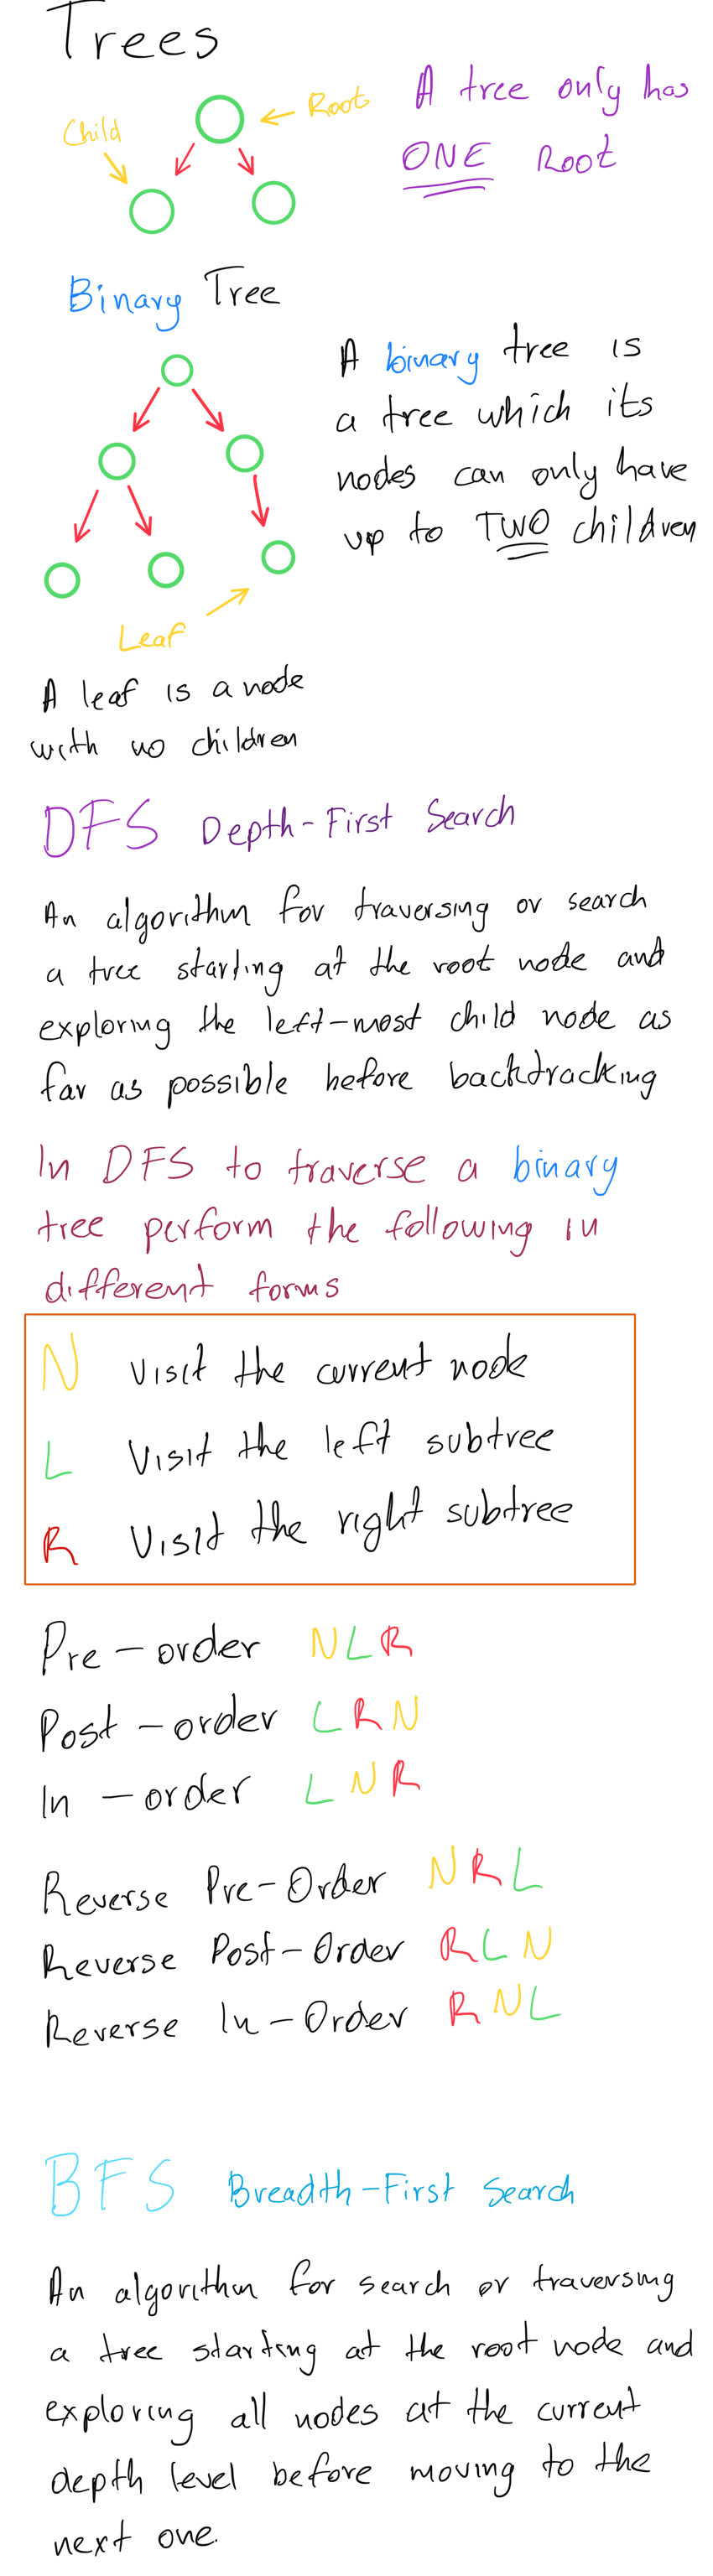 Trees
Child
Root
A tree only has
ONE Root
Binary Tree
A binary tree is
a tree which its
nodes can only have
up to TWO children
Leaf
A leaf is a node
with no children
DFS Depth-First Search
An algorithm for traversing or search
a tree starting at the root node and
exploring the left-most child node as
far as possible before backtracking
In DFS to traverse a binary
tree perform the following in
different forms
N Visit the current node
L Visit the left subtree
R Visit the right subtree
Pre-order NLR
Post-order LRN
In-order LNR
Reverse Pre-Order NRL
Reverse Post-Order RLN
Reverse In-Order RNL
BFS Breadth-First Search
An algorithm for search or traversing
a tree starting at the root node and
exploring all nodes at the current
depth level before moving to the
next one.